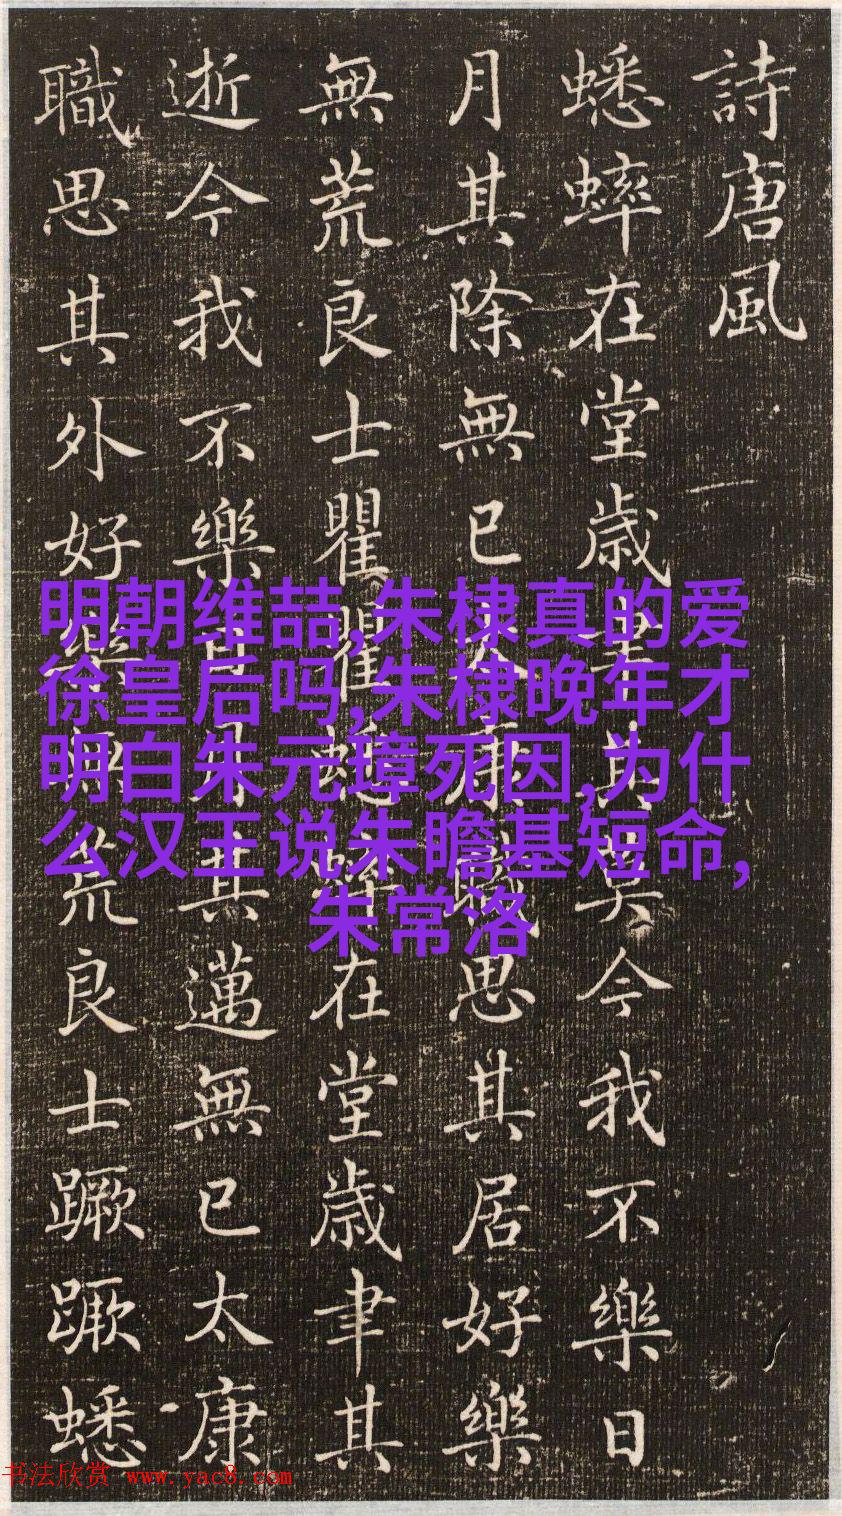 詩唐風
蟋蟀在堂歳聿其莫今我不樂日
月其除無已太康職思其居好樂
無荒良士瞿瞿蟋蟀在堂歳聿其
逝今我不樂日月其邁無已太康
職思其外好樂無荒良士蹶蹶蟋
明朝维喆,朱棣真的爱
徐皇后吗,朱棣晚年才
明白朱元璋死因,为什
么汉王说朱瞻基短命,
朱常洛
书法欣赏 www.yac8.com